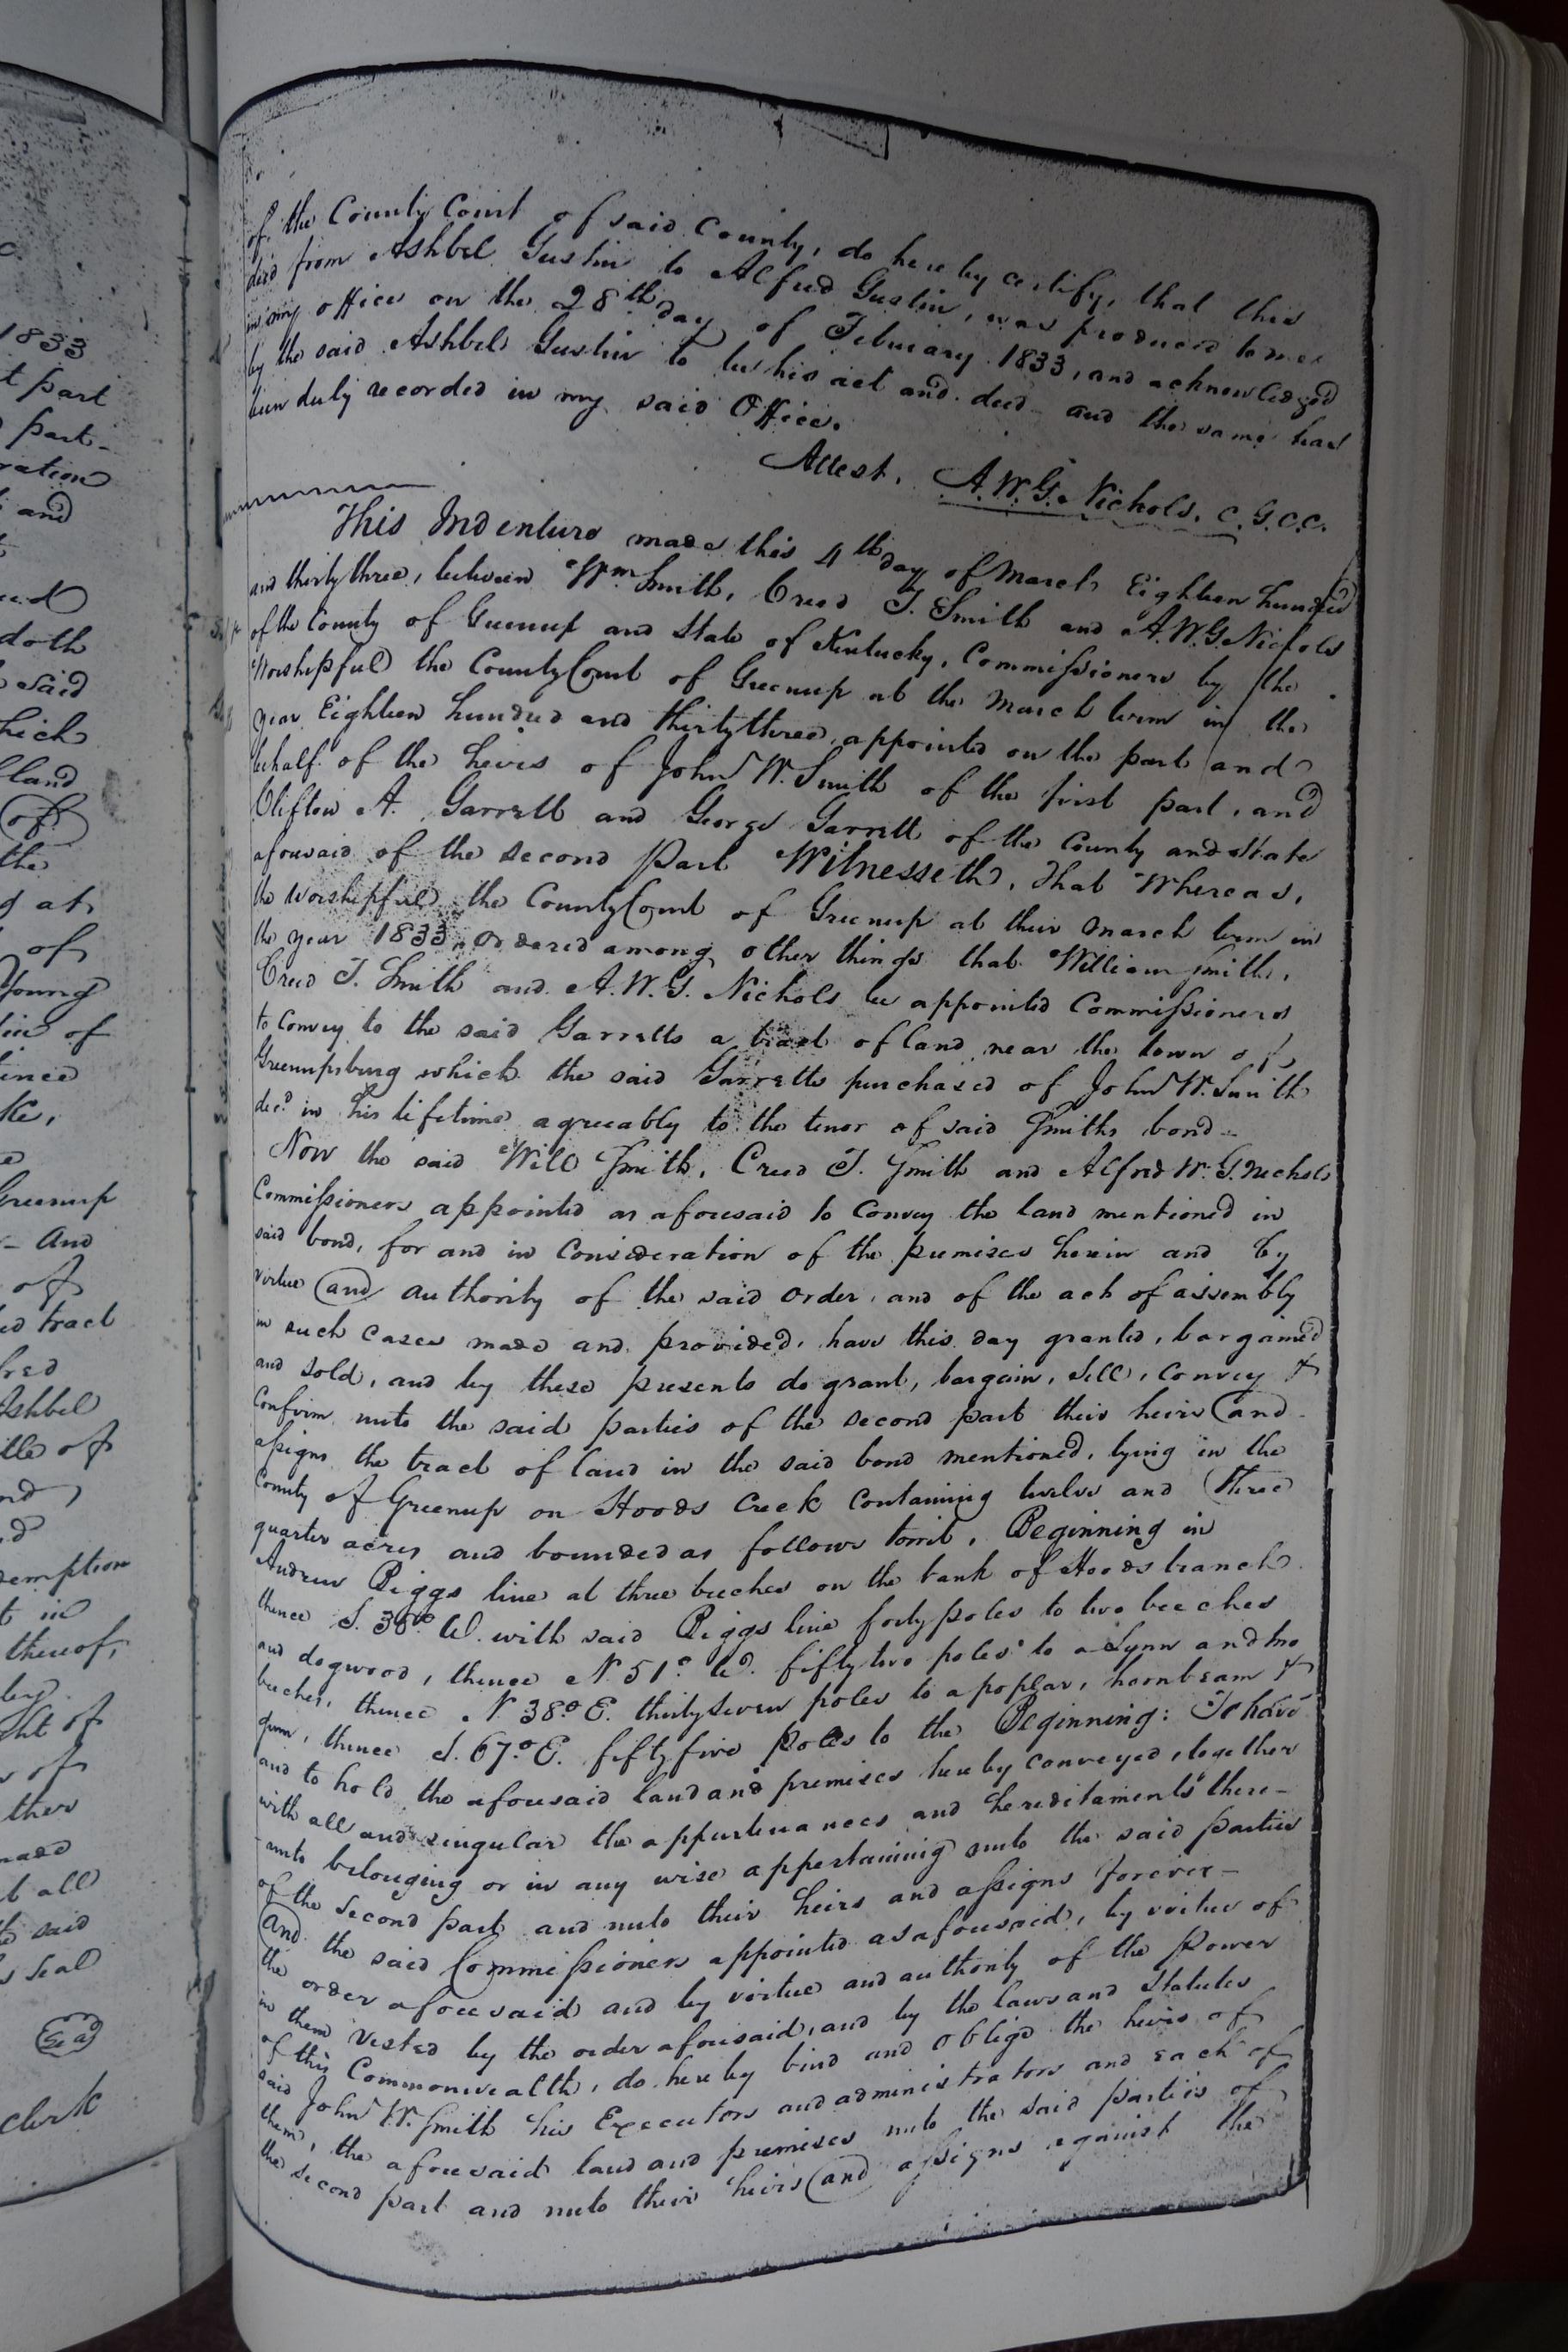 1833
t part
part-
ration
and
doth
said
hich
land
of
the
g at
of
Young
line of
ke,
Greenup
- And
of
ed tract
Ashbel
tle of
demption
t in
thereof,
by
ght of
of
ther
made
t all
the said
s Seal
Seal
clerk
of the County Court of said County, do hereby certify, that this
deed from Ashbel Gustin to Alfred Gustin, was produced to me
in my office on the 28th day of February 1833, and acknowledged
by the said Ashbel Gustin to be his act and deed and the same has
been duly recorded in my said Office.
Attest, A.W.G. Nichols, C.G.C.C.
This Indenture made this 4th day of March Eighteen hundred
and thirty three, between Wm Smith, Creed T. Smith and A.W.G. Nichols
of the County of Greenup and State of Kentucky, Commissioners by the
Worshipful the County Court of Greenup at the March term in the
year Eighteen hundred and thirty three, appointed on the part and
behalf of the heirs of John W. Smith of the first part, and
Clifton A. Garrett and George Garrett of the County and State
aforesaid of the second Part Witnesseth, That Whereas,
the Worshipful the County Court of Greenup at their March term in
the year 1833, ordered among other things that William Smith,
Creed T. Smith and A.W.G. Nichols be appointed Commissioners
to Convey to the said Garretts a tract of land near the town of
Greenupsburg which the said Garretts purchased of John W. Smith
decd in his lifetime agreeably to the tenor of said Smiths bond-
Now the said Will Smith, Creed T. Smith and Alfred W. G. Nichols
Commissioners appointed as aforesaid to Convey the land mentioned in
said bond, for and in Consideration of the premises herein and by
virtue and authority of the said order, and of the act of assembly
in such cases made and provided, have this day granted, bargained
and sold, and by these presents do grant, bargain, sell, convey &
Confirm unto the said parties of the second part their heirs and
assigns the tract of land in the said bond mentioned, lying in the
County of Greenup on Hoods Creek Containing twelve and three
quarter acres and bounded as follows towit, Beginning in
Andrew Riggs line at three beeches on the bank of Hoods branch
thence S. 38° W. with said Riggs line forty poles to two beeches
and dogwood, thence N 51° W. fifty two poles to a Lynn and two
beeches, thence N 38° E. thirty seven poles to a poplar, hornbeam &
gum, thence S. 67° E. fifty five Poles to the Beginning: To have
and to hold the aforesaid land and premises hereby conveyed, together
with all and singular the appurtenances and hereditaments there-
unto belonging or in any wise appertaining unto the said parties
of the second part and unto their heirs and assigns forever-
and the said Commissioners appointed as aforesaid, by virtue of
the order aforesaid and by virtue and authority of the Power
in them vested by the order aforesaid, and by the laws and Statutes
of this Commonwealth, do hereby bind and oblige the heirs of
said John W. Smith his Executors and administrators and each of
them, the aforesaid land and premises unto the said parties of
the second part and unto their heirs and assigns against the